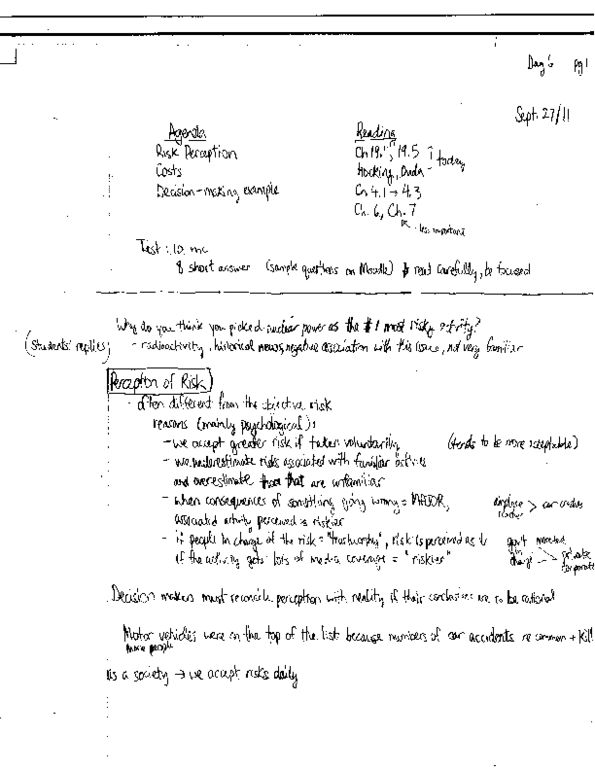 Day 6 pg 1
Sept. 27/11
Agenda
Risk Perception
Costs
Decision-making example
Reading
Ch 19.1, 19.5 today
Hocking, Duda
Ch 4.1 → 4.3
Ch. 6, Ch. 7
less important
Test: 10 mc
8 short answer (sample questions on Moodle) read carefully, be focused
Why do you think you picked nuclear power as the #1 most risky activity?
(students' replies) - radioactivity, historical news, negative association with this issue, not very familiar
Perception of Risk
- often different from the objective risk
reasons (mainly psychological):
- we accept greater risk if taken voluntarily (tends to be more acceptable)
- we underestimate risks associated with familiar activities
and overestimate that are unfamiliar
- when consequences of something going wrong = MAJOR, airplane crashes > car crashes
associated activity perceived as riskier
- if people in charge of the risk = "trustworthy", risk is perceived as ↓ gov't
if the activity gets lots of media coverage = "riskier" charge private corporate
Decision makers must reconcile perception with reality if their conclusions are to be rational
Motor vehicles were on the top of the list because numbers of car accidents common + kill
more people
As a society → we accept risks daily